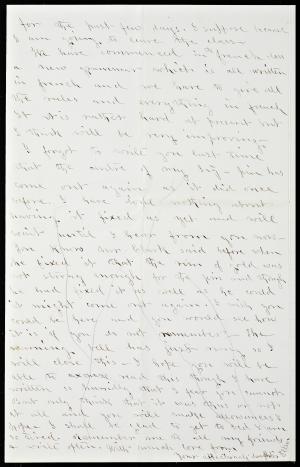 for the past few days. I suppose because
I am going to leave the class.
We have commenced in french class
a new grammar which is all written
in french and we have to give all
the rules and everything in french
It is rather hard at present but
I think will be very improving.
I forgot to write you last time
that the centre of my big pin has
come out again as it did once
before. I have done nothing about
having it fixed as yet and will
wait until I hear from you now.
You know Mr Clark said before when
he fixed it that the rim of gold was
not strong enough for the pin and though
he had fixed it as well as he could
it might come out again. I wish you
could be here and you would see how
it is if you do not remember. The
warning bell has just rung so I
will close this. I hope you will be
able to read this though I have
written so hurriedly that I fear you cannot
But only think that it is this or not
at all and you will make allowances
hope I shall be glad to get to bed I am
so tired. Remember me to all my friends
& write often. With much love from
Your affectionate daughter